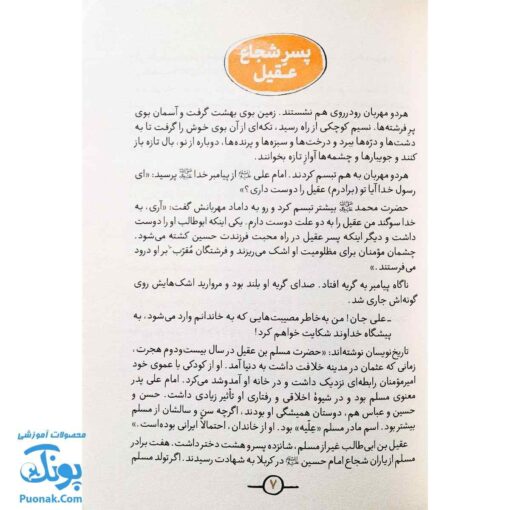 پسرِ شجاع
عـقیل
هر دو مهربان رودرروی هم نشستند. زمین بوی بهشت گرفت و آسمان بوی
پرِ فرشته‌ها. نسیم کوچکی از راه رسید، تکه‌ای از آن بوی خوش را گرفت تا به
دشت‌ها و درّه‌ها ببرد و درخت‌ها و سبزه‌ها و پرنده‌ها، دوباره از نو، بال تازه باز
کنند و جویبارها و چشمه‌ها آوازِ تازه بخوانند.
هر دو مهربان به هم تبسم کردند. امام علی از پیامبر خدا پرسید: «ای
رسول خدا آیا تو (برادرم) عقیل را دوست داری؟»
حضرت محمد ﷺ بیشتر تبسم کرد و رو به داماد مهربانش گفت: «آری، به
خدا سوگند من عقیل را به دو علت دوست دارم. یکی اینکه ابوطالب او را دوست
داشت و دیگر اینکه پسر عقیل در راه محبت فرزندت حسین کشته می‌شود.
چشمان مؤمنان برای مظلومیت او اشک می‌ریزند و فرشتگان مُقرّب بر او درود
می‌فرستند.»
ناگاه پیامبر به گریه افتاد. صدای گریهٔ او بلند بود و مروارید اشک‌هایش روی
گونه‌اش جاری شد.
ـ علی جان! من به‌خاطر مصیبت‌هایی که به خاندانم وارد می‌شود، به
پیشگاه خداوند شکایت خواهم کرد!
تاریخ‌نویسان نوشته‌اند: «حضرت مسلم بن عقیل در سال بیست‌ودوم هجرت،
زمانی که عثمان در مدینه خلافت داشت به دنیا آمد. او از کودکی با عموی خود
امیرمؤمنان رابطه‌ای نزدیک داشت و در خانه او آمدوشد می‌کرد. امام علی پدر
معنوی مسلم بود و در شیوهٔ اخلاقی و رفتاری او تأثیر زیادی داشت. حسن و
حسین و عباس هم، دوستان همیشگی او بودند، اگرچه سن و سالشان از مسلم
بیشتر بود. اسم مادر مسلم «عِلّیه» بود. او از خاندان، احتمالاً ایرانی بوده است.»
عقیل بن ابی‌طالب غیر از مسلم، شانزده پسر و هشت دختر داشت. هفت برادر
مسلم از یاران شجاع امام حسین در کربلا به شهادت رسیدند. اگر تولد مسلم
۷
محصولات آموزشی
پونک
Puonak.Com